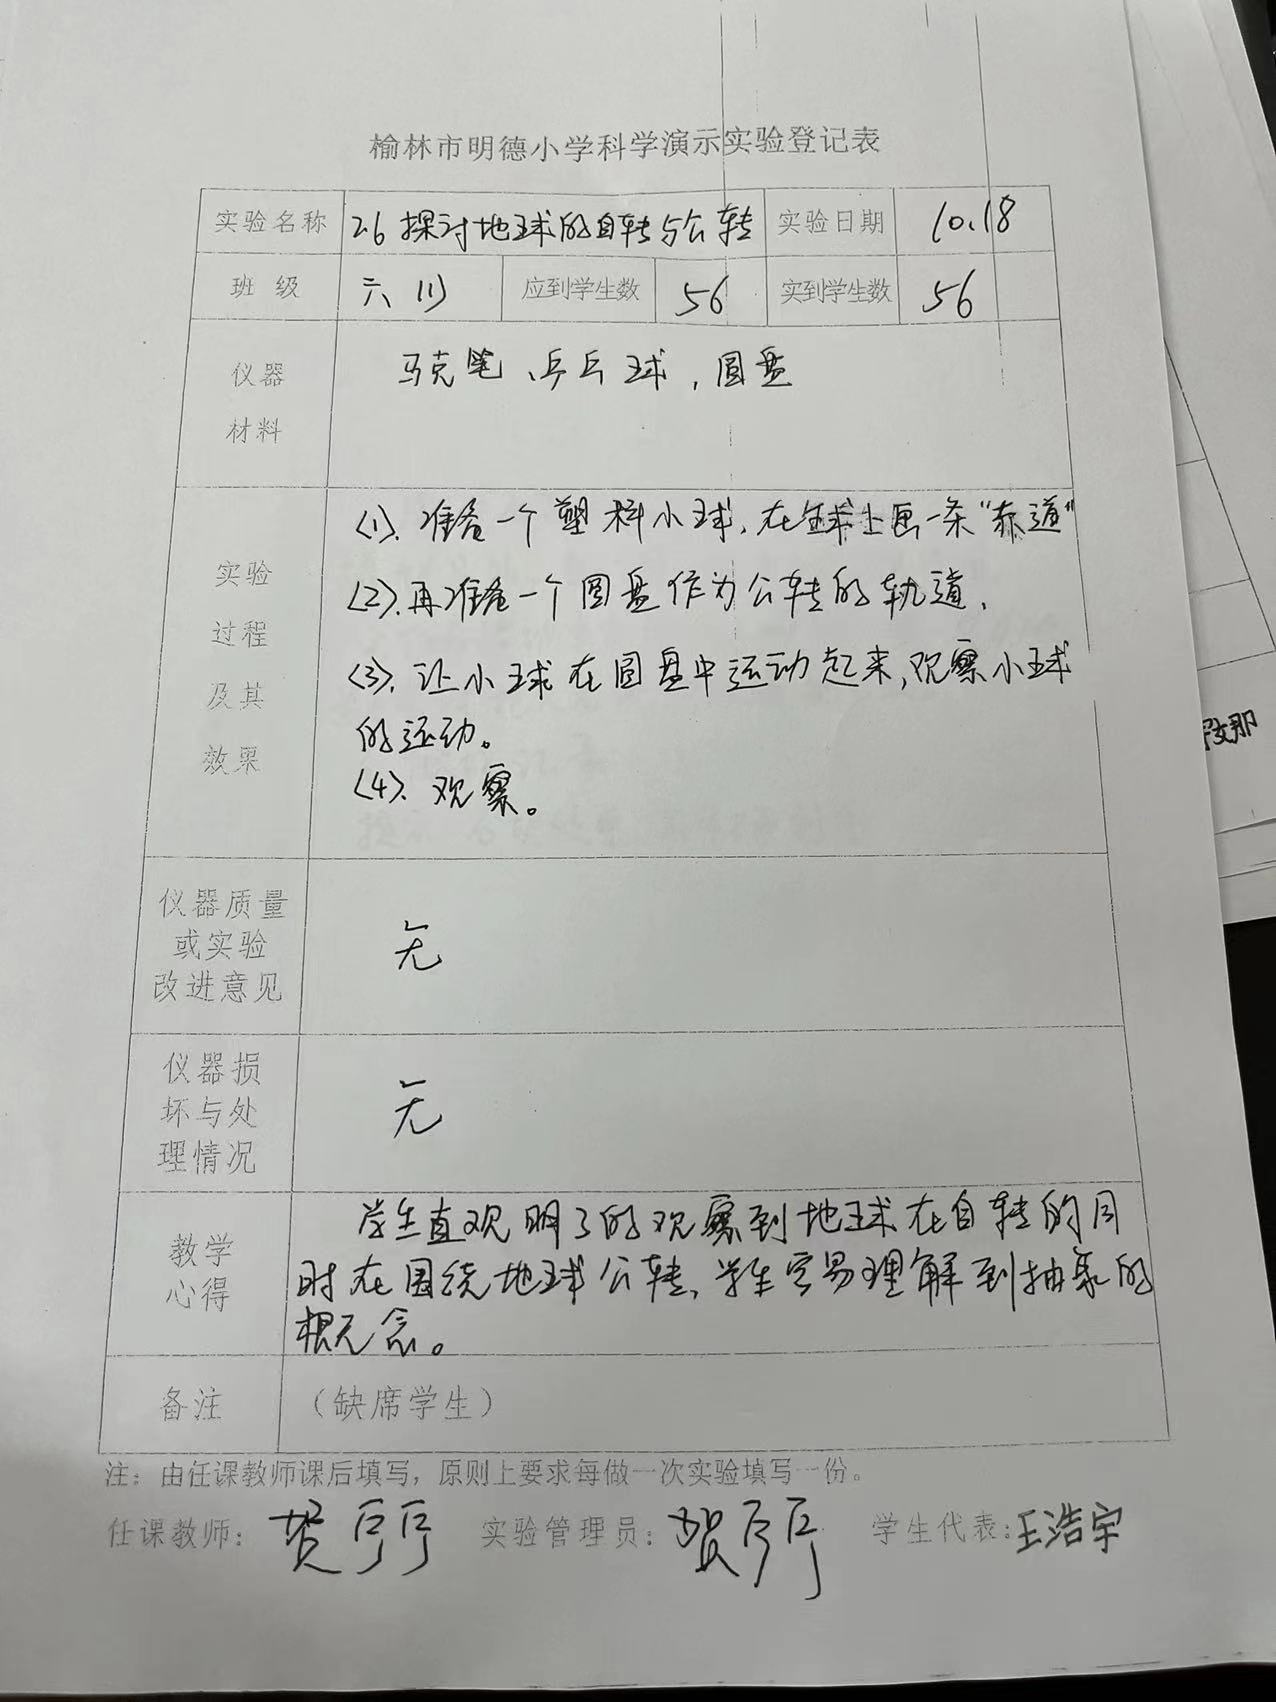 榆林市明德小学科学演示实验登记表
实验名称 2.6 探讨地球的自转与公转 实验日期 10.18
班 级 六(1) 应到学生数 56 实到学生数 56
仪器
材料
马克笔、乒乓球，圆盘
实验
过程
及其
效果
(1)、准备一个塑料小球，在球上画一条“赤道”
(2)、再准备一个圆盘作为公转的轨道，
(3)、让小球在圆盘中运动起来，观察小球
的运动。
(4)、观察。
仪器质量
或实验
改进意见
无
仪器损
坏与处
理情况
无
教学
心得
学生直观明了的观察到地球在自转的同
时在围绕地球公转，学生容易理解到抽象的
概念。
备注 （缺席学生）
注：由任课教师课后填写，原则上要求每做一次实验填写一份。
任课教师：贺 实验管理员：贺 学生代表：王浩宇